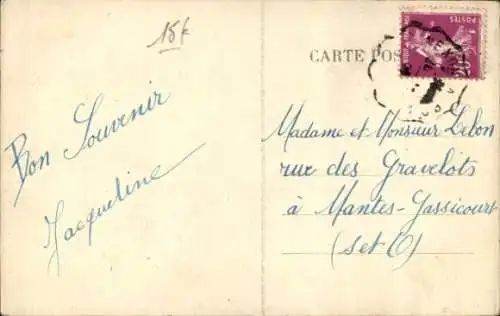 15f
CARTE POS
POSTES
20
Bon Souvenir
Jacqueline
Madame et Monsieur Lebon
rue des Gravelots
à Mantes-Gassicourt
(Set O)